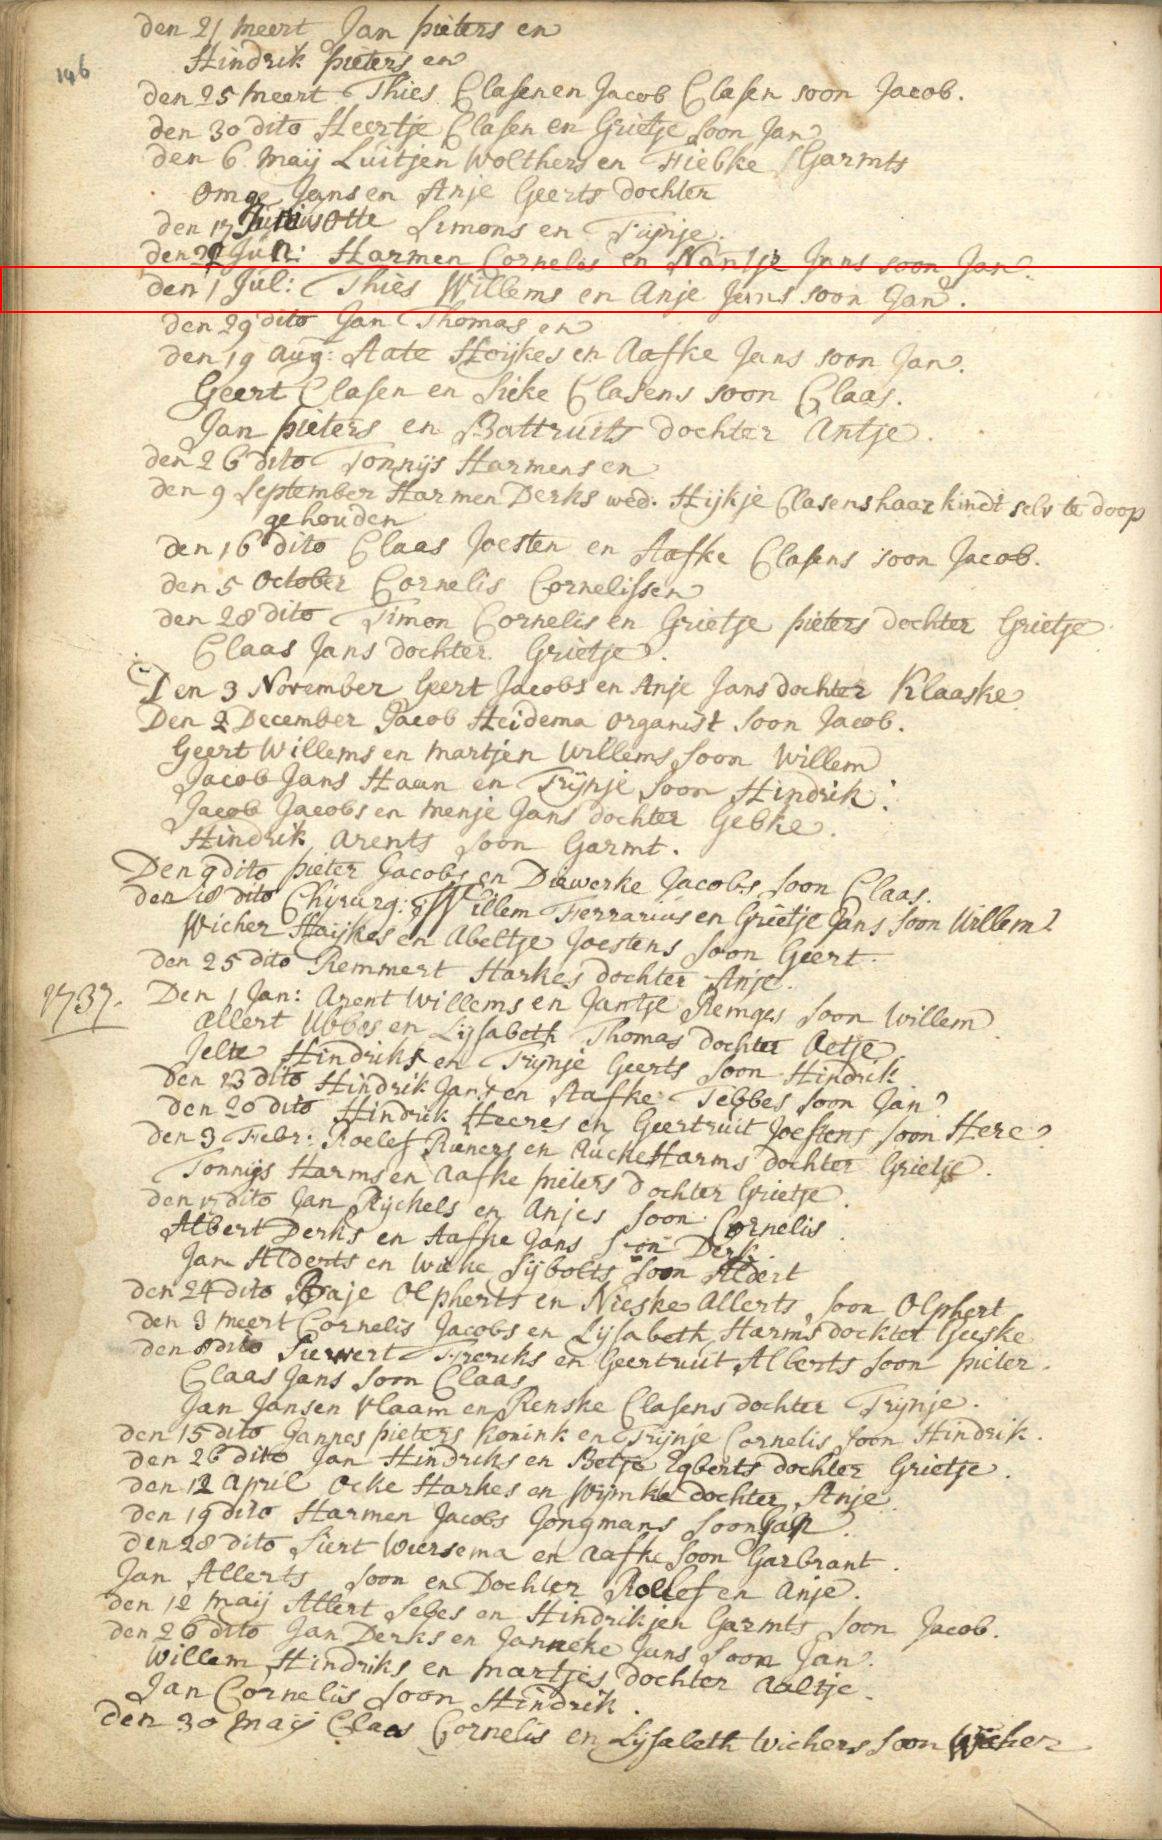 146
den 21 meert Jan pieters en
Hindrik pieters en
den 25 meert Thies Clasen en Jacob Clasen soon Jacob.
den 30 dito Heertje Clasen en Grietje soon Jan
den 6 Maij Luitjen Wolthers en Fiebke Garmts
Omge Jans en Anje Geerts dochter
den 17 Junius Otte Simons en Trijnje.
den Jul: Harmen Cornelis en Nantje Jans soon Jan.
den 1 Jul: Thies Willems en Anje Jans soon Jan.
den 29 dito Jan Thomas en
den 19 aug: Aate Heijkes en Aafke Jans soon Jan.
Geert Clasen en Sieke Clasens soon Claas.
Jan pieters en Battruits dochter Antje.
den 26 dito Tonnijs Harmens en
den 9 September Harmen Derks wed. Hijkje Clasens haar kindt selv te doop
gehouden
den 16 dito Claas Joesten en Aafke Clasens soon Jacob.
den 5 October Cornelis Cornelissen
den 28 dito Timon Cornelis en Grietje pieters dochter Grietje
Claas Jans dochter Grietje.
Den 3 November Geert Jacobs en Anje Jans dochter Klaaske
Den 2 December Jacob Heidema organist soon Jacob.
Geert Willems en Martjen Willems soon Willem
Jacob Jans Haan en Trijnje soon Hindrik.
Jacob Jacobs en Menje Jans dochter Gebke.
Hindrik Arents soon Garmt.
Den 9 dito pieter Jacobs en Diewerke Jacobs soon Claas.
den 18 dito Chijrurg: Willem Ferrarius en Grietje Jans soon Willem
Wicher Haijkes en Abeltje Joestens soon Geert.
den 25 dito Remmert Harkes dochter Anje.
1737. Den 1 Jan: Arent Willems en Jantje Remges soon Willem
Allert Ubbes en Lijsabeth Thomas dochter Aetje
Jelte Hindriks en Trijnje Geerts soon Hindrik
den 13 dito Hindrik Jans en Aafke Tebbes soon Jan
den 20 dito Hindrik Heeres en Geertruit Joestens soon Here
den 3 Febr: Roelef Rieners en Aucke Harms dochter Grietje.
Tonnijs Harms en Aafke pieters dochter Grietje.
den 17 dito Jan Rijckels en Anjes soon Cornelis.
Albert Derks en Aafke Jans soon Derk.
Jan Alderts en Wieke Sijbolts soon Aldert
den 24 dito Baje Olpherts en Nieske Allerts soon Olphert
den 3 meert Cornelis Jacobs en Lijsabeth Harms dochter Geeske
den 8 dito Siewert Freriks en Geertruit Alberts soon pieter.
Claas Jans soon Claas
Jan Jansen Vlaam en Renske Clasens dochter Trijnje.
den 15 dito Jannes pieters Konink en Trijnje Cornelis soon Hindrik.
den 26 dito Jan Hindriks en Betje Egberts dochter Grietje.
den 12 April Ocke Harkes en Wijmke dochter Anje.
den 19 dito Harmen Jacobs Jongmans soon Jan.
den 28 dito Siert Wiersema en Aafke soon Garbrant.
Jan Allerts soon en Dochter Rollef en Anje.
den 12 Maij Allert Sebes en Hindrikjen Garmts soon Jacob.
den 26 dito Jan Derks en Janneke Jans soon Jan.
Willem Hindriks en Martjes dochter Aaltje.
Jan Cornelis soon Hindrik.
den 30 Maij Claas Cornelis en Lijsabeth Wichers soon Wicher